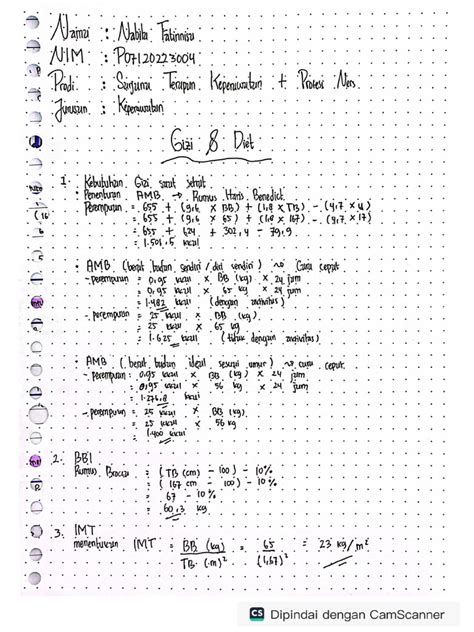 Nama : Nabila Fatinnisa
NIM : P07120223004
Prodi : Sarjana Terapan Keperawatan + Profesi Ners
Jurusan : Keperawatan
Gizi & Diet
1. Kebutuhan Gizi saat sehat
• Penentuan AMB → Rumus Harris Benedict
Perempuan = 655 + (9,6 × BB) + (1,8 × TB) - (4,7 × U)
= 655 + (9,6 × 65) + (1,8 × 167) - (4,7 × 17)
= 655 + 624 + 302,4 - 79,9
= 1.501,5 kkal
• AMB (berat badan sendiri / diri sendiri) ~> Cara cepat
- perempuan = 0,95 kkal × BB (kg) × 24 jam
= 0,95 kkal × 65 kg × 24 jam
= 1.482 kkal (dengan aktivitas)
- perempuan = 25 kkal × BB (kg)
= 25 kkal × 65 kg
= 1.625 kkal (tidak dengan aktivitas)
• AMB (berat badan ideal sesuai umur) ~> cara cepat
- perempuan = 0,95 kkal × BB (kg) × 24 jam
= 0,95 kkal × 56 kg × 24 jam
= 1.276,8 kkal
- perempuan = 25 kkal × BB (kg)
= 25 kkal × 56 kg
= 1.400 kkal
2. BBI
Rumus Broca = (TB (cm) - 100) - 10%
= (167 cm - 100) - 10%
= 67 - 10%
= 60,3 kg
3. IMT
menentukan IMT = BB (kg) / TB (m)² = 65 / (1,67)² = 23 kg/m²
CS Dipindai dengan CamScanner